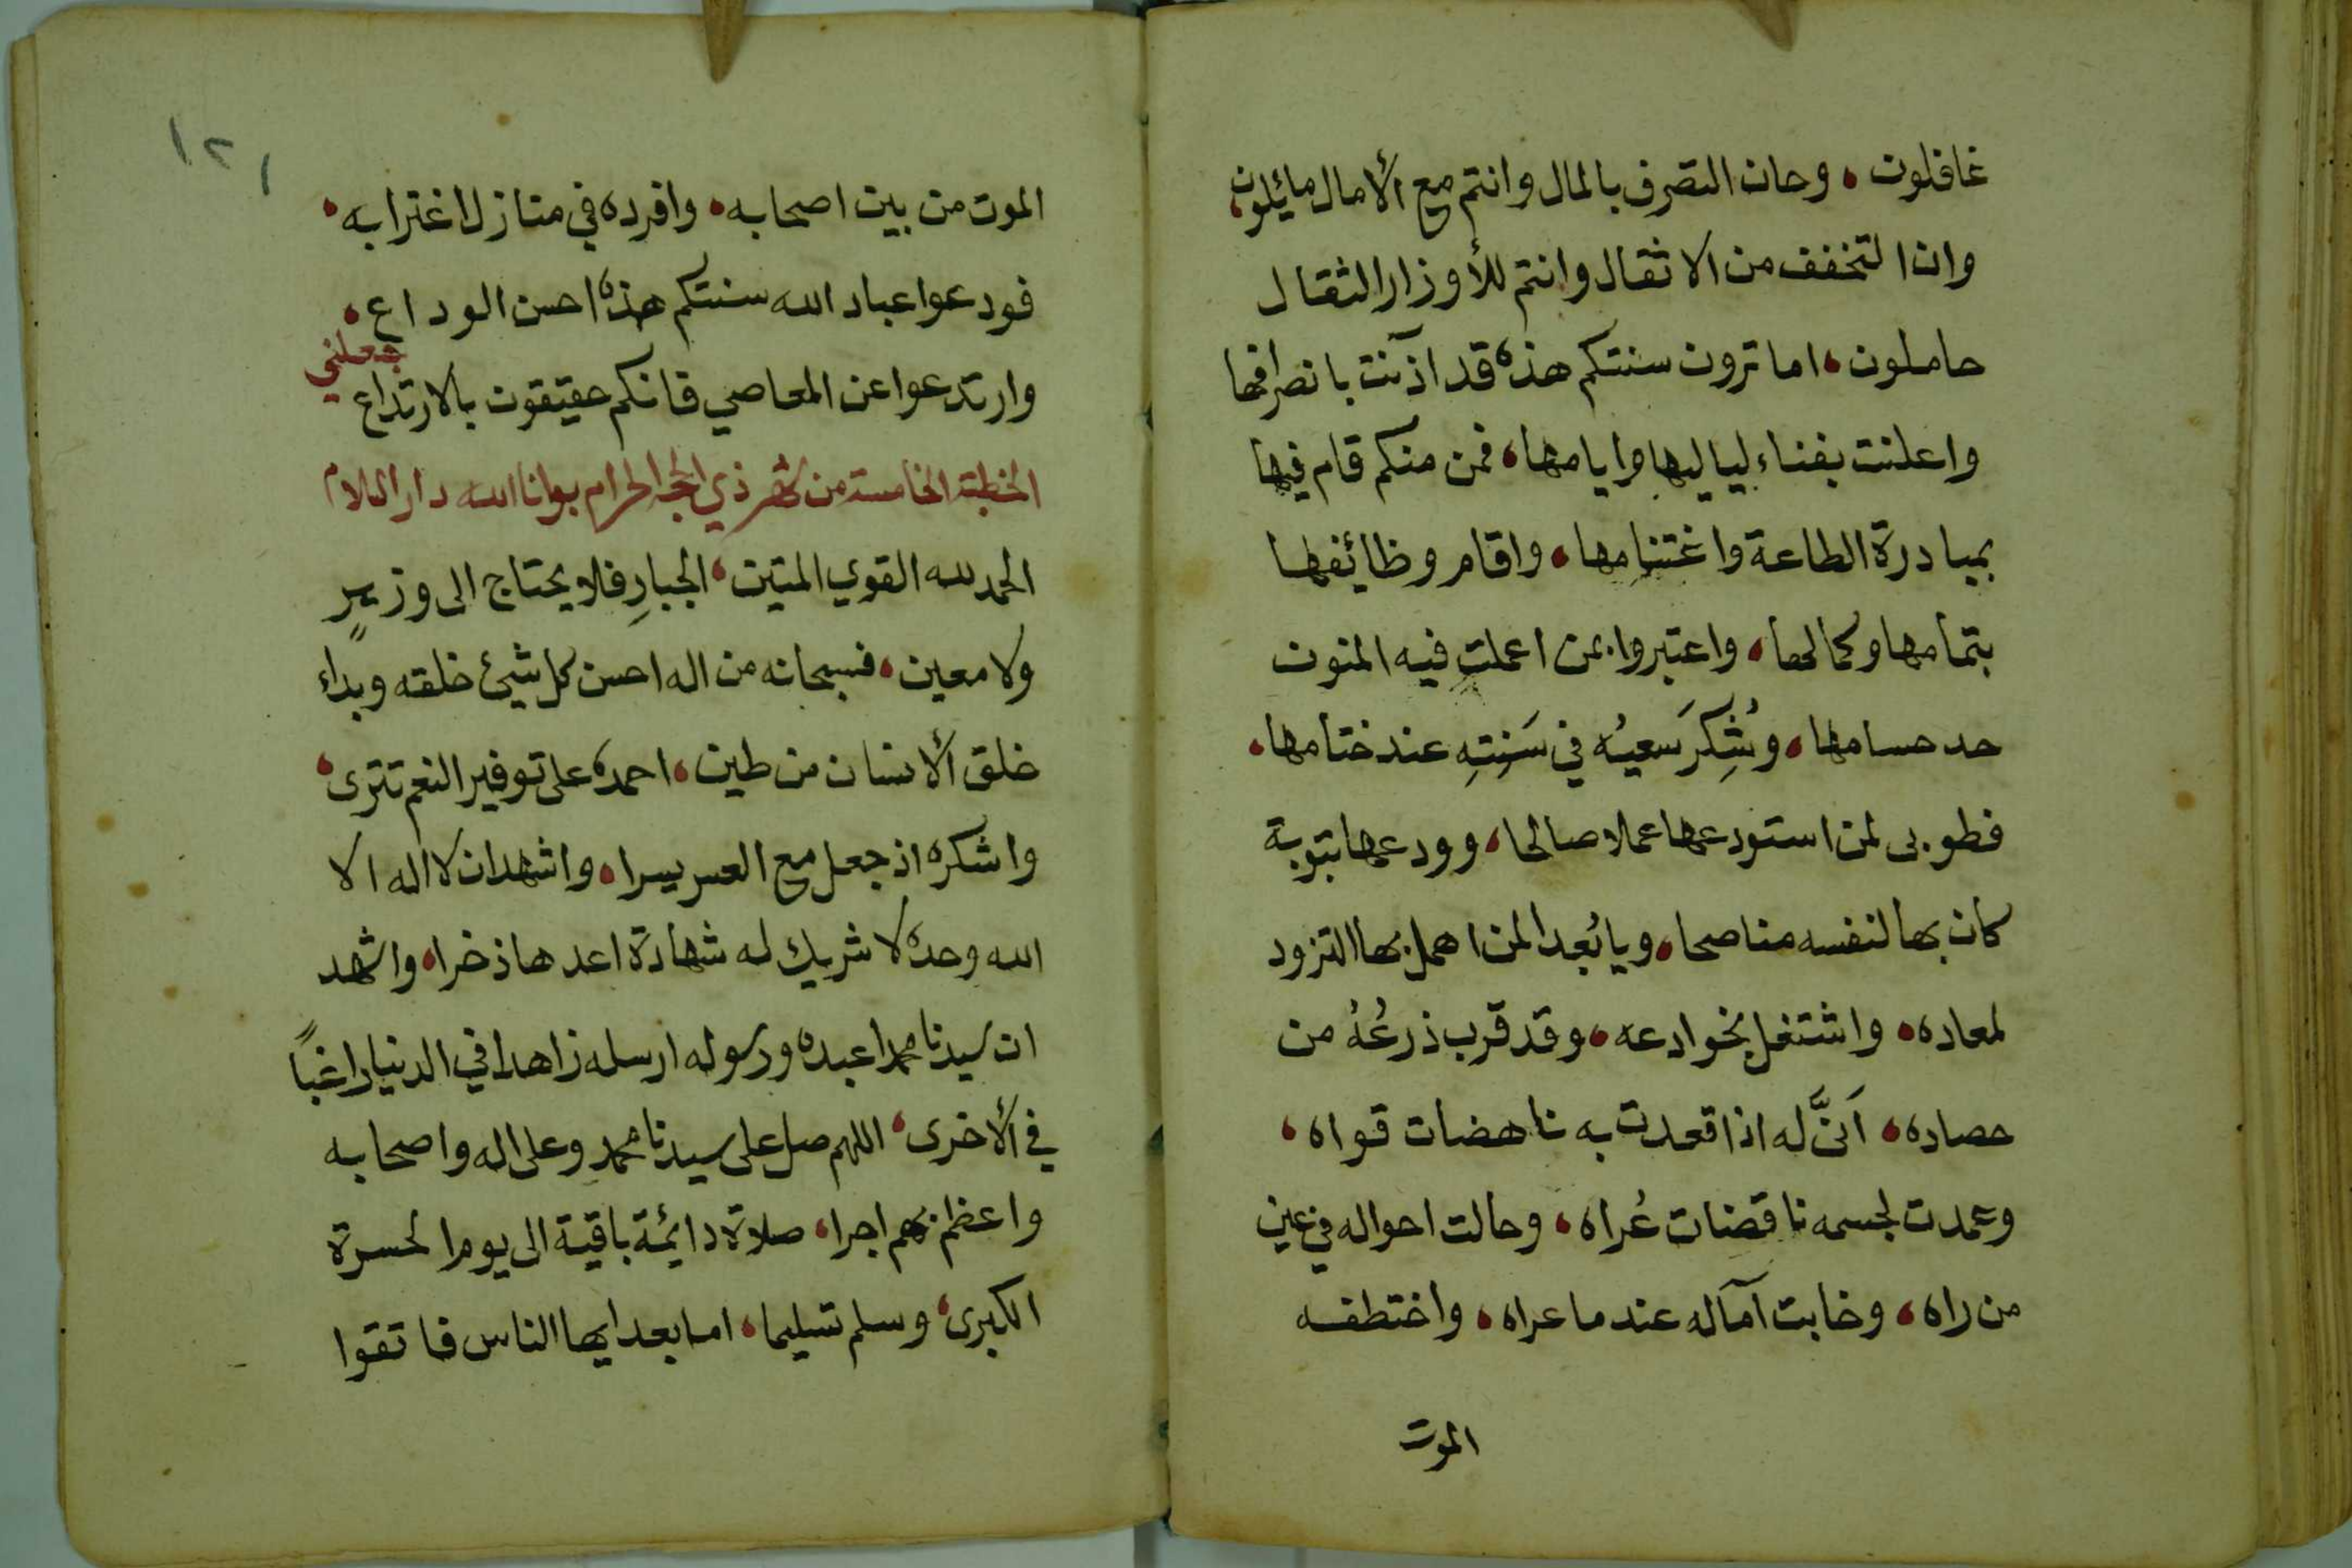 غافلون ، وحان التصرف بالمال وانتم مع الأمال مائلون
وان التخفف من الاثقال وانتم للأوزار الثقال
حاملون ، اما ترون سنتكم هذه قد آذنت بانصرافها
واعلنت بفناء لياليها وايامها ، فمن منكم قام فيها
بمبادرة الطاعة واغتنامها ، واقام وظائفها
بتمامها وكمالها ، واعتبروا بمن اعملت فيه المنون
حد حسامها ، وشُكِرَ سَعيُه في سَنتِهِ عند ختامها ،
فطوبى لمن استودعها عملا صالحا ، وودعها بتوبة
كان بها لنفسه مناصحا ، ويا بُعدا لمن اهمل بها التزود
لمعاده ، واشتغل بخوادعه ، وقد قرب ذرعُهُ من
حصاده ، اَنَّى له اذا قعدت به ناهضات قواه ،
وعمدت لجسمه ناقضات عُراه ، وحالت احواله في عين
من راه ، وخابت آماله عند ما عراه ، واختطفه
الموت
١٢١
الموت من بين اصحابه ، وافرده في منازل اغترابه ،
فودعوا عباد الله سنتكم هذه احسن الوداع ،
وارتدعوا عن المعاصي فانكم حقيقون بالارتداع
جعلني
الخطبة الخامسة من شهر ذي الحجة الحرام بوانا الله دار السلام
الحمد لله القوي المتين ، الجبارِ فلا يحتاج الى وزيرٍ
ولا معين ، فسبحانه من اله احسن كل شيئ خلقه وبداء
خلق الأنسان من طين ، احمده على توفير النعم تترى ،
واشكره اذ جعل مع العسر يسرا ، واشهد ان لا اله الا
الله وحده لا شريك له شهادة اعدها ذخرا ، واشهد
ان سيدنا محمدا عبده ورسوله ارسله زاهدا في الدنيا راغباً
في الأخرى ، اللهم صل على سيدنا محمد وعلى اله واصحابه
واعظم بهم اجرا ، صلاة دائمة باقية الى يوم الحسرة
الكبرى ، وسلم تسليما ، اما بعد ايها الناس فاتقوا